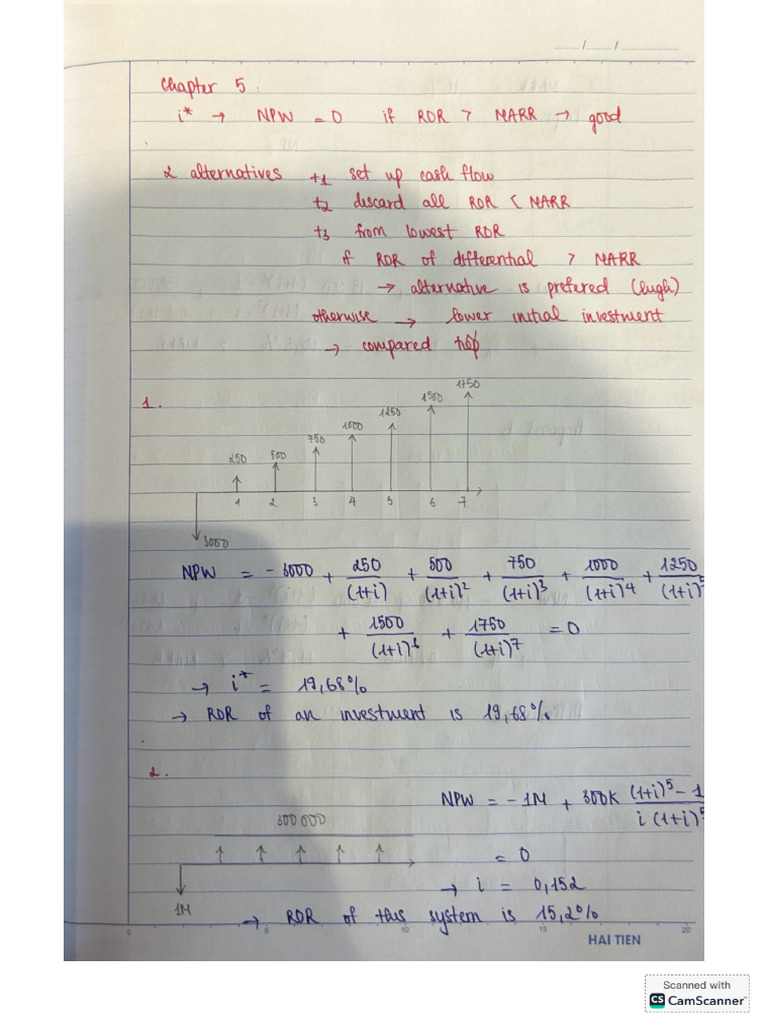 ___/___/______
Chapter 5.
i* → NPW = 0 if ROR > MARR → good
2 alternatives +1 set up cash flow
t2 discard all ROR < MARR
t3 from lowest ROR
if ROR of differential > MARR
→ alternative is prefered (high)
otherwise → lower initial investment
→ compared tiếp
1.
250 500 750 1000 1250 1500 1750
1 2 3 4 5 6 7
3000
NPW = - 3000 + 250/(1+i) + 500/(1+i)^2 + 750/(1+i)^3 + 1000/(1+i)^4 + 1250/(1+i)^5
+ 1500/(1+i)^6 + 1750/(1+i)^7 = 0
→ i* = 19,68%
→ ROR of an investment is 19,68%
2.
NPW = - 1M + 300K (1+i)^5 - 1 / i(1+i)^5
300 000
= 0
→ i = 0,152
1M
→ ROR of this system is 15,2%
0 5 10 15 20
HAI TIEN
Scanned with
CS CamScanner